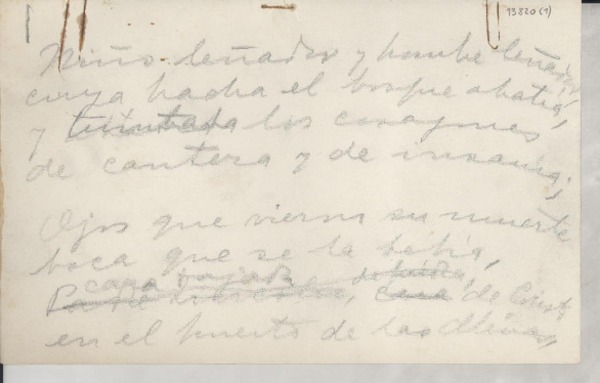 13820(1)
Niño leñador y hombre leñador,
cuya hacha el bosque abatía,
y los corazones
de cantera y de insania;
Ojos que vieron su muerte
boca que se la bebía,
cara de Cristo
en el puerto de las